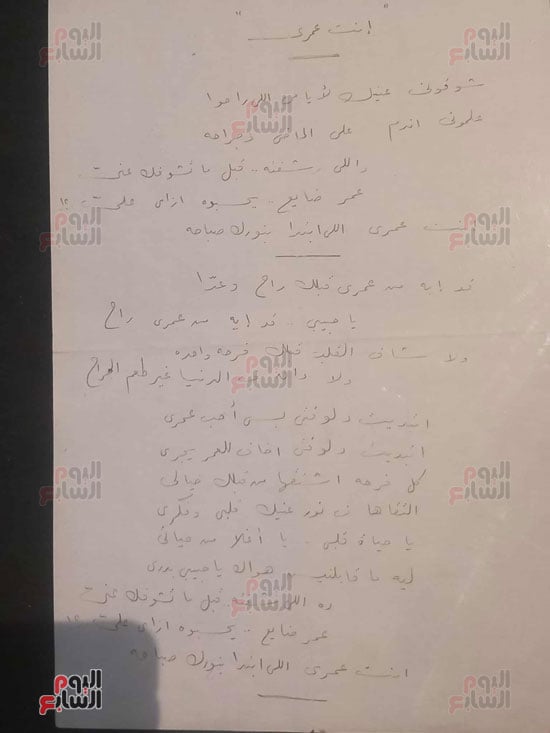 " إنت عمرى "
شوفونى عنيك لأيامى اللى راحوا
علمونى اندم على الماضى وجراحه
واللى شفته .. قبل ما تشوفك عنى
عمر ضايع .. يحسبوه ازاى على ؟!
انت عمرى اللى ابتدا بنورك صباحه
قد إيه من عمرى قبلك راح وعدّا
يا حبيبى .. قد إيه من عمرى راح
ولا شاف القلب قبلك فرحه واحده
ولا داق من الدنيا غير طعم الجراح
ابتديت دلوقتى بس أحب عمرى
ابتديت دلوقتى اخاف العمر يجرى
كل فرحه اشتقتها من قبلك خيالى
التقاها فى نور عنيك قلبى وفكرى
يا حياة قلبى .. يا أغلا من حياتى
ليه ما قابلنيش هواك يا حبيبى بدرى
ده اللى شفته قبل ما تشوفك عنى
عمر ضايع .. يحسبوه ازاى على ؟!
انت عمرى اللى ابتدا بنورك صباحه
اليوم السابع